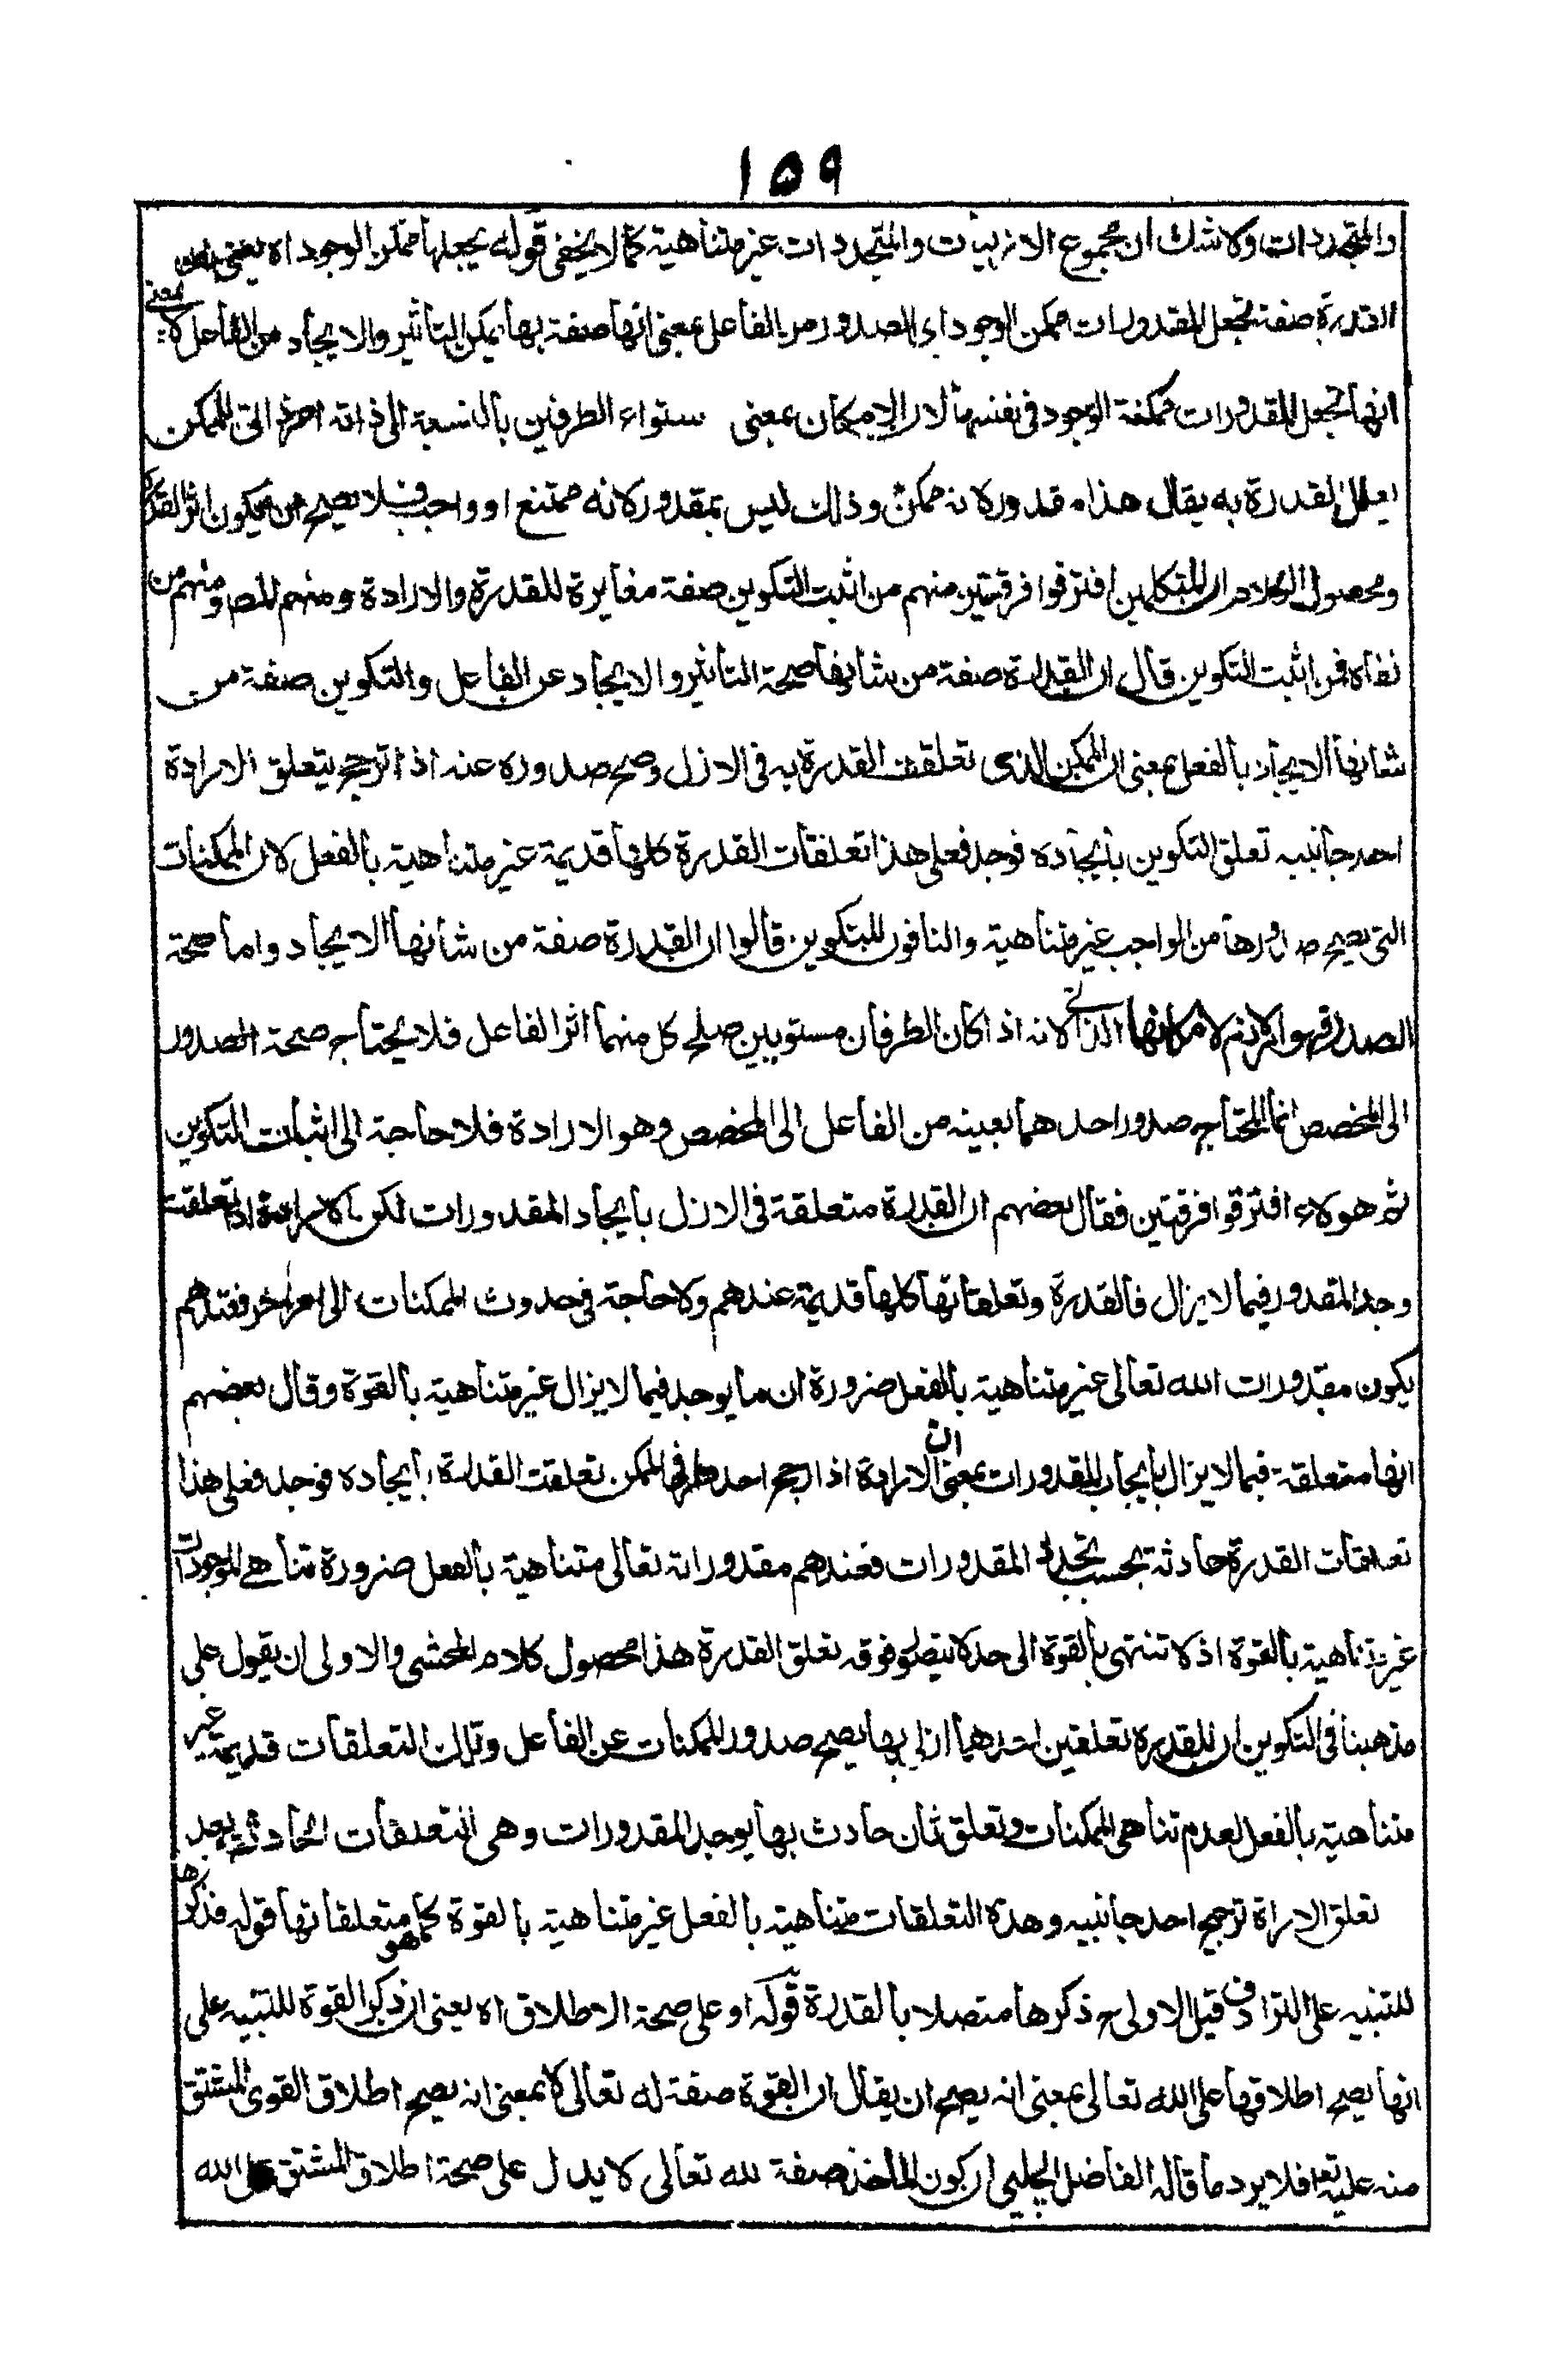 ١٥٩
والمتجددات ولا شك ان مجموع الازليات والمتجددات غير متناهية كما لا يخفى قوله يجعلها ممكن الوجود اه يعنى
القدرة صفة تجعل المقدورات ممكن الوجود اى الصدور من الفاعل بمعنى انها صفة بها يمكن التأثير والايجاد من الفاعل لا بمعنى
انها تجعل المقدورات ممكنة الوجود فى نفسها لان الامكان بمعنى ستواء الطرفين بالنسبة الى ذاته امر ذاتى للممكن
يعلل القدرة به يقال هذا مقدور لانه ممكن وذلك ليس بمقدور لانه ممتنع او واجب فلا يصح ان يكون اثر القدرة
ومحصول الكلام ان المتكلمين افترقوا فرقتين منهم من اثبت التكوين صفة مغايرة للقدرة والارادة ومنهم المص ومنهم من
نفاه فمن اثبت التكوين قال ان القدرة صفة من شانها صحة التأثير والايجاد عن الفاعل والتكوين صفة من
شانها الايجاد بالفعل بمعنى ان الممكن الذى تعلقت القدرة به فى الازل وصح صدوره عنه اذا ترجح بتعلق الارادة
احد جانبيه تعلق التكوين بايجاده فوجد فعلى هذا تعلقات القدرة كلها قديمة غير متناهية بالفعل لان الممكنات
التى يصح صدورها من الواجب غير متناهية والنافون للتكوين قالوا ان القدرة صفة من شأنها الايجاد واما صحة
الصدور فهو لازم لامكانها الذاتى لانه اذا كان الطرفان مستويين صلح كل منهما اثر الفاعل فلا يحتاج صحة الصدور
الى المخصص انما المحتاج صدور احدهما بعينه من الفاعل الى المخصص وهو الارادة فلا حاجة الى اثبات التكوين
ثم هولاء افترقوا فرقتين فقال بعضهم ان القدرة متعلقة فى الازل بايجاد المقدورات لكن الارادة اذا تعلقت
وجد المقدور فيما لا يزال فالقدرة وتعلقاتها كلها قديمة عندهم ولا حاجة فى حدوث الممكنات الى امر اخر فعندهم
يكون مقدورات الله تعالى غير متناهية بالفعل ضرورة ان ما يوجد فيما لا يزال غير متناهية بالقوة وقال بعضهم
انها متعلقة فيما لا يزال بايجاد المقدورات بمعنى ان الارادة اذا رجح احد طرفى الممكن تعلقت القدرة بايجاده فوجد فعلى هذا
تعلقات القدرة حادثة بحسب تجدد المقدورات فعندهم مقدوراته تعالى متناهية بالفعل ضرورة تناهى الموجودات
غير متناهية بالقوة اذ لا تنتهى بالقوة الى حد لا يتصور فوقه تعلق القدرة هذا محصول كلام المحشى والاولى ان يقول على
مذهبنا فى التكوين ان للقدرة تعلقين احدهما ازلى بها يصح صدور الممكنات عن الفاعل وتلك التعلقات قديمة غير
متناهية بالفعل لعدم تناهى الممكنات وتعلق ثان حادث بها يوجد المقدورات وهى التعلقات الحادثة بعد
تعلق الارادة ترجيح احد جانبيه وهذه التعلقات متناهية بالفعل غير متناهية بالقوة كما هو متعلقاتها قوله فذكرها
للتنبيه على الترادف قيل الاولى ح ذكرها متصلا بالقدرة قوله او على صحة الاطلاق اه يعنى ان ذكر القوة للتنبيه على
انها يصح اطلاقها على الله تعالى بمعنى انه يصح ان يقال ان القوة صفة له تعالى لا بمعنى انه يصح اطلاق القوى المشتق
منه عليه تعا فلا يرد ما قاله الفاضل الجلبى ان كون المأخذ صفة لله تعالى لا يدل على صحة اطلاق المشتق على الله